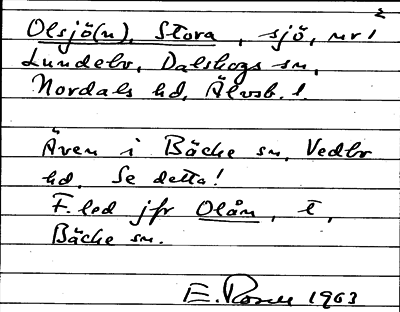 2
Olsjö(n), Stora, sjö, nr 1
Lundebo, Dalskogs sn,
Nordals hd, Älvsb. l.
Även i Bäcke sn, Vedbo
hd. Se detta!
F. led jfr Olån, t,
Bäcke sn.
E. Rosell 1963